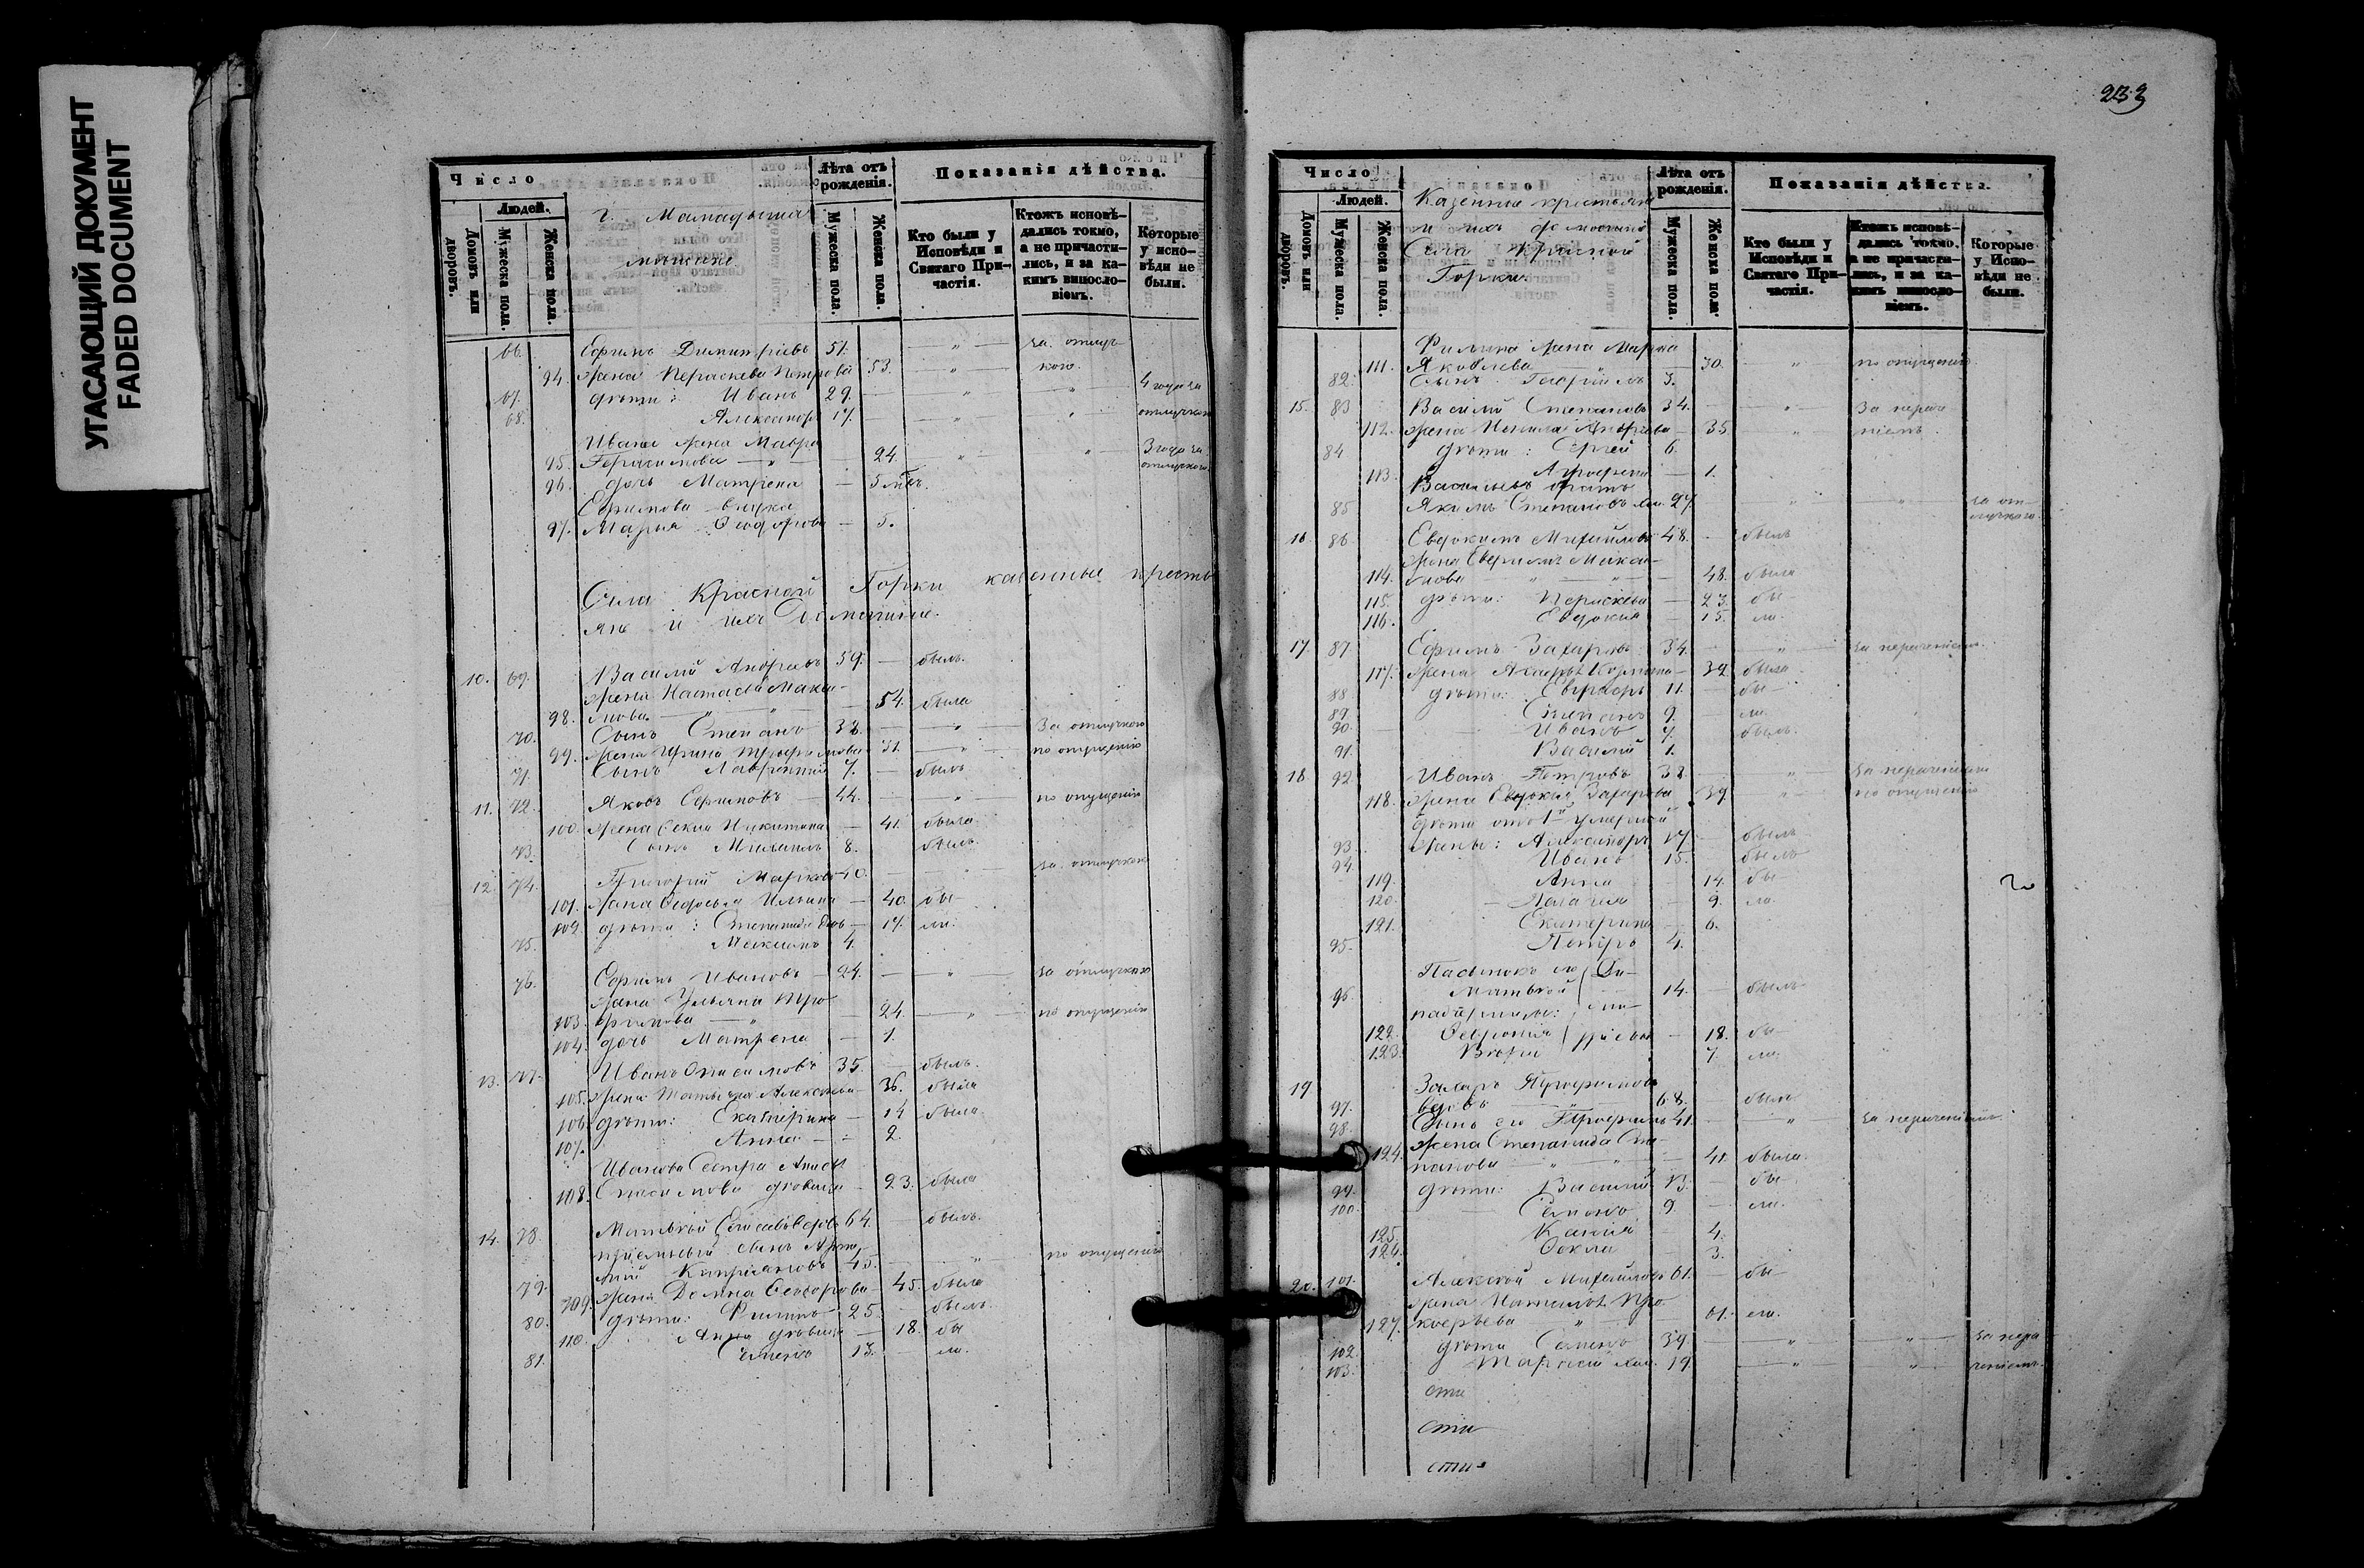 УГАСАЮЩИЙ ДОКУМЕНТ
FADED DOCUMENT
Число
Людей.
Домовъ или дворовъ.
Мужеска пола.
Женска пола.
г. Мамадыша
мѣщане
Лѣта отъ рожденія.
Мужеска пола.
Женска пола.
Показанія дѣйства.
Кто были у Исповѣди и Святаго Причастія.
Ктожъ исповѣдались токмо, а не причастились, и за какимъ винословіемъ.
Которые у исповѣди не были.
66. Ефимъ Димитріевъ 51. — " — за отлуч-
94. жена Перасkева Петрова 53. — " — кою.
67. дѣти: Иванъ 29. — " — " — 4 года за
68. Александръ 17. — " — " отлучкою
Ивана жена Мавра
95. Герасимова — " — 24. " " — 3 года за отлучкою.
96. дочь Матрена — 5 мѣс.
Ефимова внука
97. Марья Ѳеодорова — 5.
Села Красной Горки казенные кресть
яне и ихъ домашние.
10. 69. Василій Андреевъ 59. — былъ.
жена Настасья Макси-
98. мова — " — 54. была
70. Сынъ Степанъ 32. — " — За отлучкою
99. жена Ирина Трофимова 31. — " — по опущенію
71. Сынъ Лаврентій 7. — былъ
11. 72. Яковъ Ефимовъ 44. — " — по опущенію
100. жена Ѳекла Никитина — 41. была.
73. Сынъ Михаилъ 8. былъ.
12. 74. Григорій Марковъ 40. — " — за отлучкою
101. жена Ѳедосья Ильина — 40. бы-
102. дѣти: Степанида — 17. ли.
75. Максимъ 4.
76. Ефимъ Ивановъ — 24. — " — за отлучкою
жена Ульяна Тро-
103. фимова — " — 24. — " — по опущенію
104. дочь Матрена — 1.
13. 77. Иванъ 35. — былъ.
105. жена Татьяна Алексѣева — 36. была
106. дѣти: Екатерина — 14. была.
107. Анна — 2.
Иванова Сестра
108. дѣвица — 23. была
14. 78. Матвей 64. — былъ.
пріемный сынъ
79. Кипріановъ 45. — " — по опущенію
109. жена Домна Ѳеодорова — 45. была
80. дѣти: Филипъ — 25. — былъ.
110. Анна дѣвица — 18. бы
81. Семенъ 13. — ли.
233
Число
Людей.
Домовъ или дворовъ.
Мужеска пола.
Женска пола.
Казенные крестьяне
и ихъ домашніе
Села Красной
Горки.
Лѣта отъ рожденія.
Мужеска пола.
Женска пола.
Показанія дѣйства.
Кто были у Исповѣди и Святаго Причастія.
Ктожъ исповѣдались токмо, а не причастились, и за какимъ винословіемъ.
Которые у Исповѣди не были.
Филипа жена Марѳа
111. Яковлева — " — 30. — " — по опущенію
82. Сынъ Гавріилъ 3.
15. 83 Василій Степановъ 34. — " — За нераче
112. жена Андреева — 35. " — ніемъ.
84 дѣти: Сергей 6.
113. — 1.
Васильевъ братъ
85 Якимъ Степановъ 27. " — " — за от-
лучкою.
16 86 Евдокимъ Михайловъ 48. — былъ
жена Макси-
114. мова " — " — 48. была
115. дѣти: Перасkева — 23. бы-
116. Евдокия — 15. ли.
17 87. Ефимъ Захаровъ 34. — " — за нераченіемъ.
117. жена Козмина — 32 была
88 дѣти: 11. — бы-
89 Степанъ 9. — ли.
90. Иванъ 7. — былъ.
91. Василій 1.
18 92. Иванъ Петровъ 38. — " — за нераченіемъ
118. жена Евдокия Захарова 39. — " — по опущенію
дѣти отъ 1й умершей
93. жены: Александръ 17 — былъ
94. Иванъ 15. — былъ
119. Анна — 14. бы
120. Пелагия — 9. ли.
121. Екатерина — 6.
95. Петръ 4.
Пасынокъ его
96 Матвей 14. — былъ
падчерицы:
122. Ѳеврония — 18. бы-
123. Вѣра 7. ли.
19 Захаръ Трофимовъ
97. вдовъ — " — 68. — былъ
98. Сынъ его Трофимъ 41. — " — за нераченіемъ.
жена Степанида Сте-
124. панова — " — " — 41. была.
99. дѣти: Василій 13. — бы-
100. Семенъ 9. — ли.
125. Ксенія — 4.
126. Ѳекла — 3.
20. 101. Алексѣй Михайловъ 61. — бы-
жена Наталья Про-
127. кофьева — " — 61. — ли.
102. дѣти Семенъ 39. — " — " — за нера-
103. Тарасій 19. — " — " — ченіемъ.